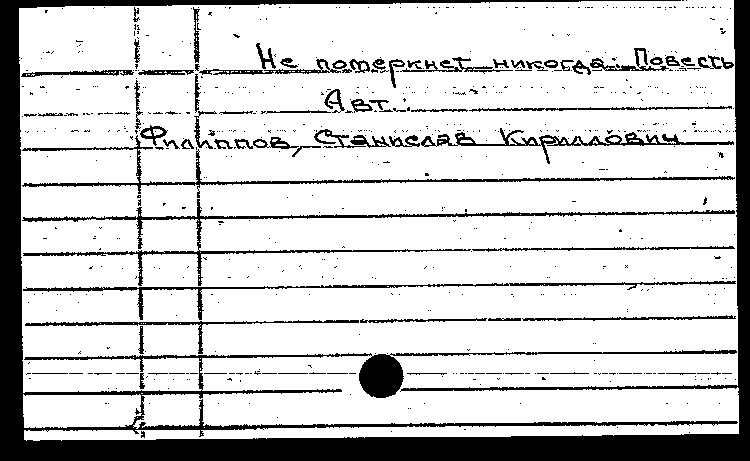 Не потеркнет никогда: Повесть
Авт.:
Филиппов, Станислав Кириллович